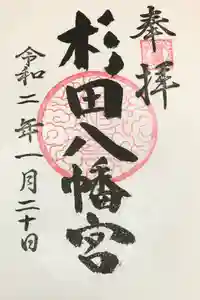 奉拝
杉田八幡宮
令和二年一月二十日